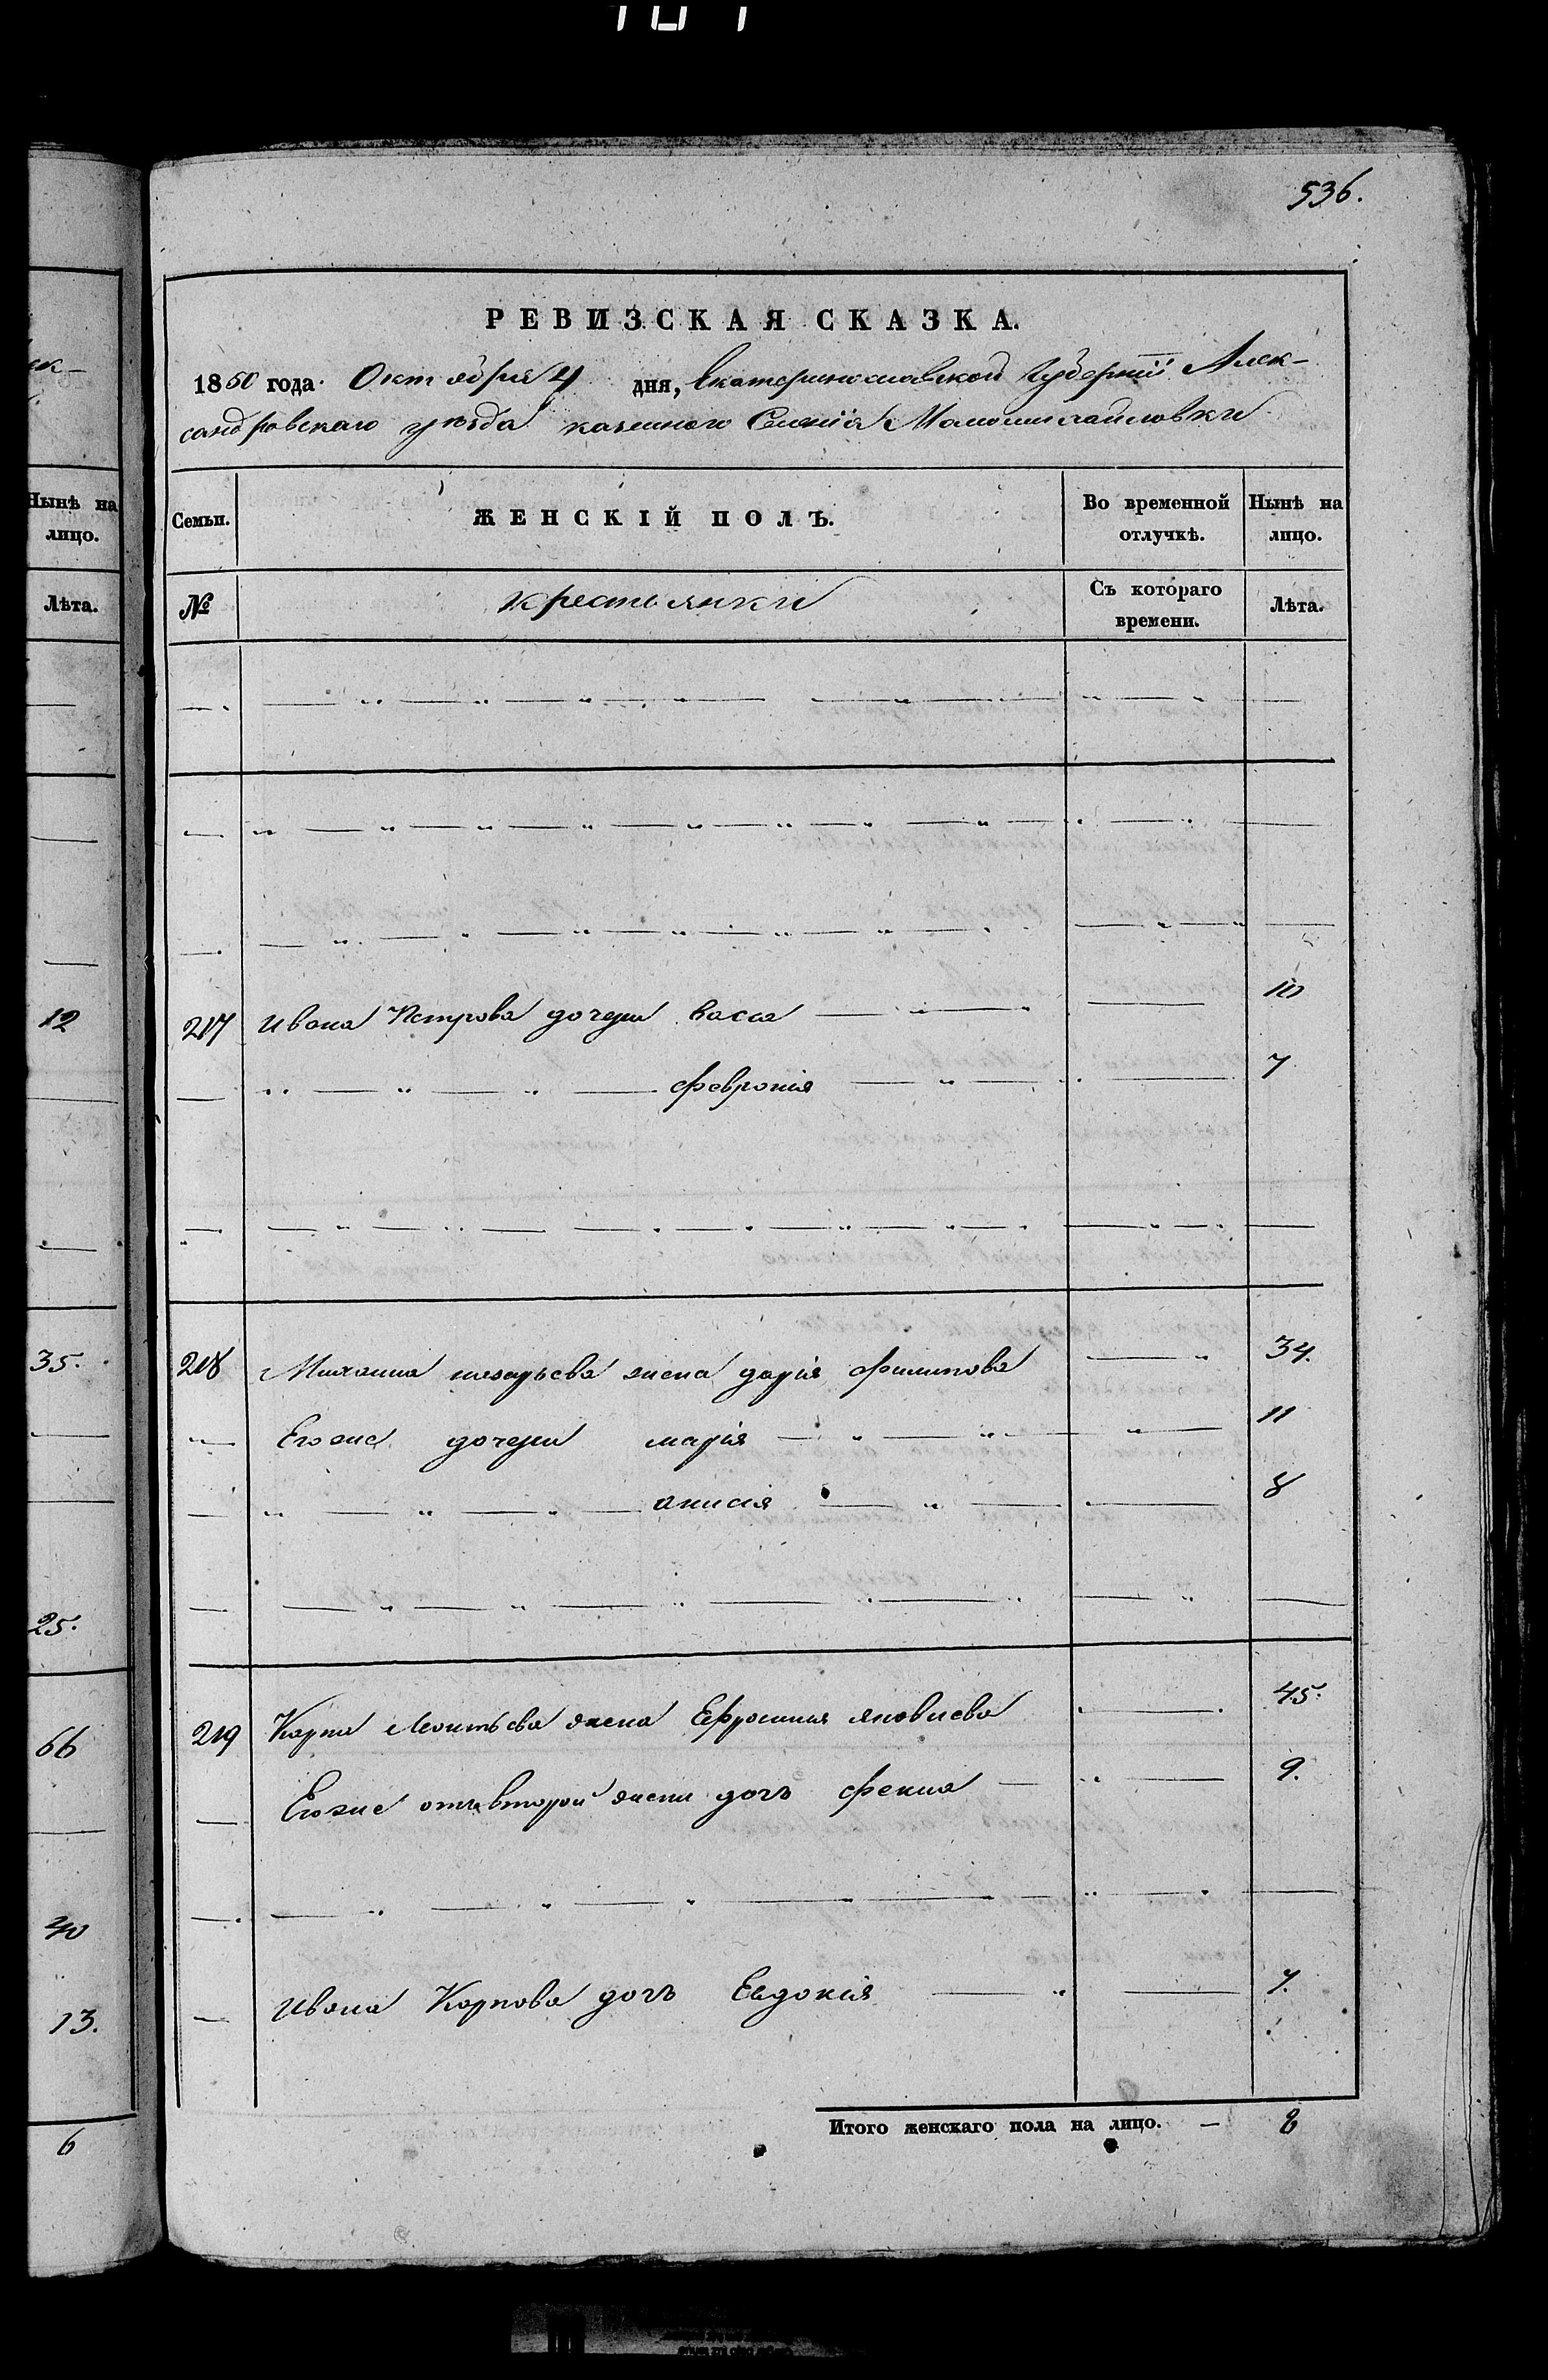 536.
РЕВИЗСКАЯ СКАЗКА.
1850 года. Октября 4 дня, Екатеринославской Губернiи Алек-
сандровскаго уѣзда казенного Селенiя Маломихайловки
Семьи.
ЖЕНСКІЙ ПОЛЪ.
Во временной отлучкѣ.
Нынѣ на лицо.
№
крестьянки
Съ котораго времени.
Лѣта.
217 Ивана Петрова дочери Васса 10
Феврония 7
218 Михаила жена дарiя Филипова 34.
Егоже дочери марiя 11
анисiя 8
219 Карпа Леонтьева жена Ефросиния яковлева 45.
Егоже отъ второй жены дочь Фекла 9.
Ивана Карпова дочь Евдокiя 7.
Итого женскаго пола на лицо. — 8
Нынѣ на
лицо.
Лѣта.
12
35.
25.
66
40
13.
6